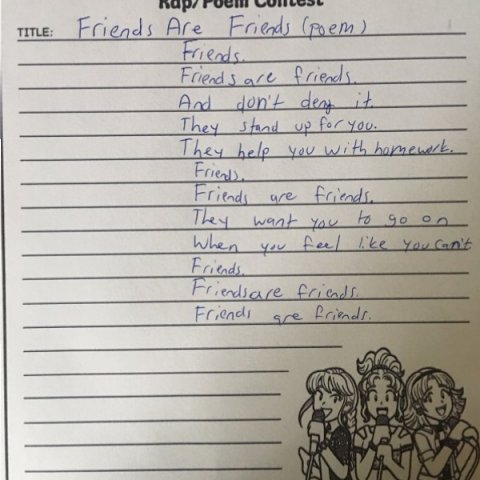 Rap/Poem Contest
TITLE: Friends Are Friends (poem)
Friends.
Friends are friends.
And don't deny it.
They stand up for you.
They help you with homework.
Friends.
Friends are friends.
They want you to go on
When you feel like you can't
Friends.
Friends are friends.
Friends are friends.